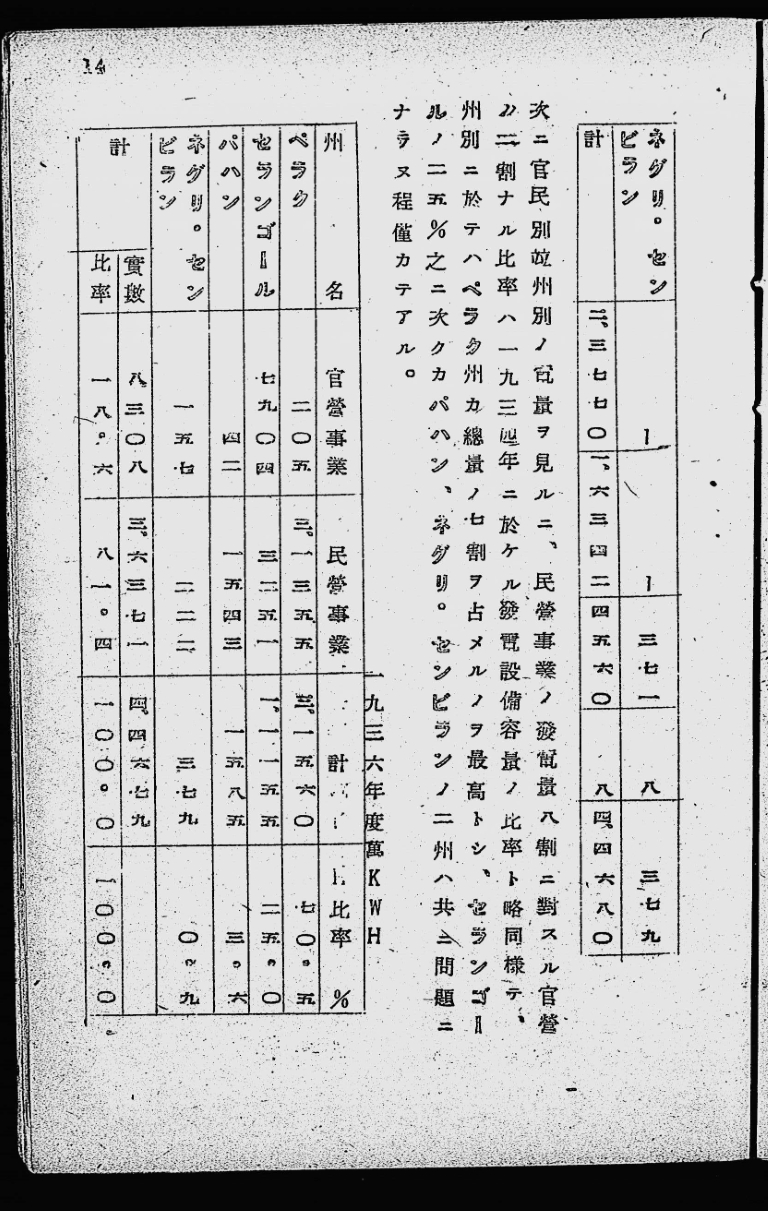 14
ネグリ。センビラン ー ー 三七一 八 三七九
計 二、三七七〇 一、六三四二 四五六〇 八 四、四六八〇
次ニ官民別竝州別ノ電量ヲ見ルニ、民營事業ノ發電量八割ニ對スル官營
ハ二割ナル比率ハ一九三四年ニ於ケル發電設備容量ノ比率ト略同様テ、
州別ニ於テハペラク州カ總量ノ七割ヲ占メルノヲ最高トシ、セランゴー
ルノ二五%之ニ次クカパハン、ネグリ。センビランノ二州ハ共ニ問題ニ
ナラヌ程僅カテアル。
一九三六年度萬KWH
州名 官營事業 民營事業 計 比率%
ペラク 二〇五 三、一三五五 三、一五六〇 七〇。五
セランゴール 七九〇四 三二五一 一、一一五五 二五。〇
パハン 四二 一五四三 一五八五 三。六
ネグリ。センビラン 一五七 二二二 三七九 〇。九
計 實數 八三〇八 三、六三七一 四、四六七九
比率 一八。六 八一。四 一〇〇。〇 一〇〇。〇